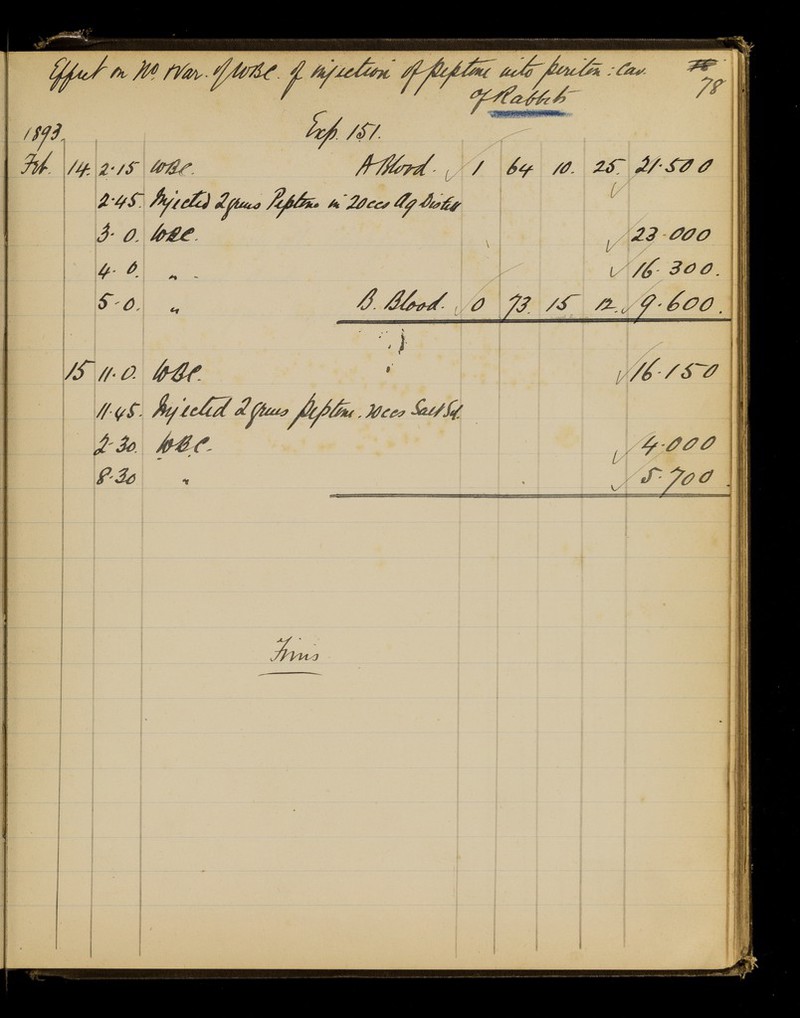 Effect on No. & Var. of WBC. of injection of Peptone into periton: cav.
78
of Rabbits
1893.
Exp. 151.
Feb. 14. 2.15 WBC. A Blood. 1 64 10. 25. 21.500
2.45. Injected 2 grms Peptone in 20ccs Aq Distill
3. 0. WBC. 23.000
4. 0. " 16.300.
5.0. " B. Blood. 0 73. 15 12. 9.600.
15 11.0. WBC. 16.150
11.45. Injected 2 grms peptone. 20ccs Salt Sol.
2.30. WBC. 4.000
8.30 " 5.700.
Finis